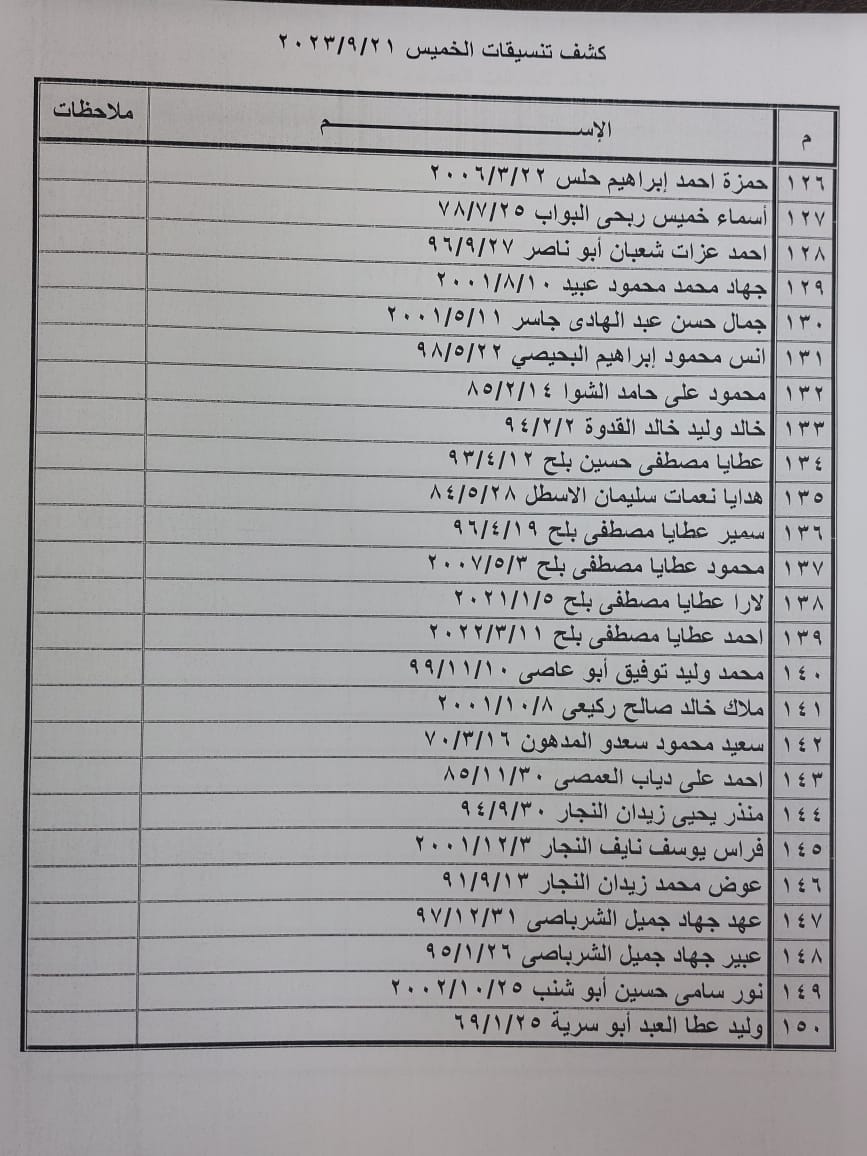 كشف تنسيقات الخميس ٢٠٢٣/٩/٢١
م الإســــــــم ملاحظات
١٢٦ حمزة احمد إبراهيم حلس ٢٠٠٦/٣/٢٢
١٢٧ أسماء خميس ربحى البواب ٧٨/٧/٢٥
١٢٨ احمد عزات شعبان أبو ناصر ٩٦/٩/٢٧
١٢٩ جهاد محمد محمود عبيد ٢٠٠١/٨/١٠
١٣٠ جمال حسن عبد الهادى جاسر ٢٠٠١/٥/١١
١٣١ انس محمود إبراهيم البحيصي ٩٨/٥/٢٢
١٣٢ محمود على حامد الشوا ٨٥/٢/١٤
١٣٣ خالد وليد خالد القدوة ٩٤/٢/٢
١٣٤ عطايا مصطفى حسين بلح ٩٣/٤/١٢
١٣٥ هدايا نعمات سليمان الاسطل ٨٤/٥/٢٨
١٣٦ سمير عطايا مصطفى بلح ٩٦/٤/١٩
١٣٧ محمود عطايا مصطفى بلح ٢٠٠٧/٥/٣
١٣٨ لارا عطايا مصطفى بلح ٢٠٢١/١/٥
١٣٩ احمد عطايا مصطفى بلح ٢٠٢٢/٣/١١
١٤٠ محمد وليد توفيق أبو عاصى ٩٩/١١/١٠
١٤١ ملاك خالد صالح ركيعى ٢٠٠١/١٠/٨
١٤٢ سعيد محمود سعدو المدهون ٧٠/٣/١٦
١٤٣ احمد على دياب العمصى ٨٥/١١/٣٠
١٤٤ منذر يحيى زيدان النجار ٩٤/٩/٣٠
١٤٥ فراس يوسف نايف النجار ٢٠٠١/١٢/٣
١٤٦ عوض محمد زيدان النجار ٩١/٩/١٣
١٤٧ عهد جهاد جميل الشرباصى ٩٧/١٢/٣١
١٤٨ عبير جهاد جميل الشرباصى ٩٥/١/٢٦
١٤٩ نور سامى حسين أبو شنب ٢٠٠٢/١٠/٢٥
١٥٠ وليد عطا العبد أبو سرية ٦٩/١/٢٥